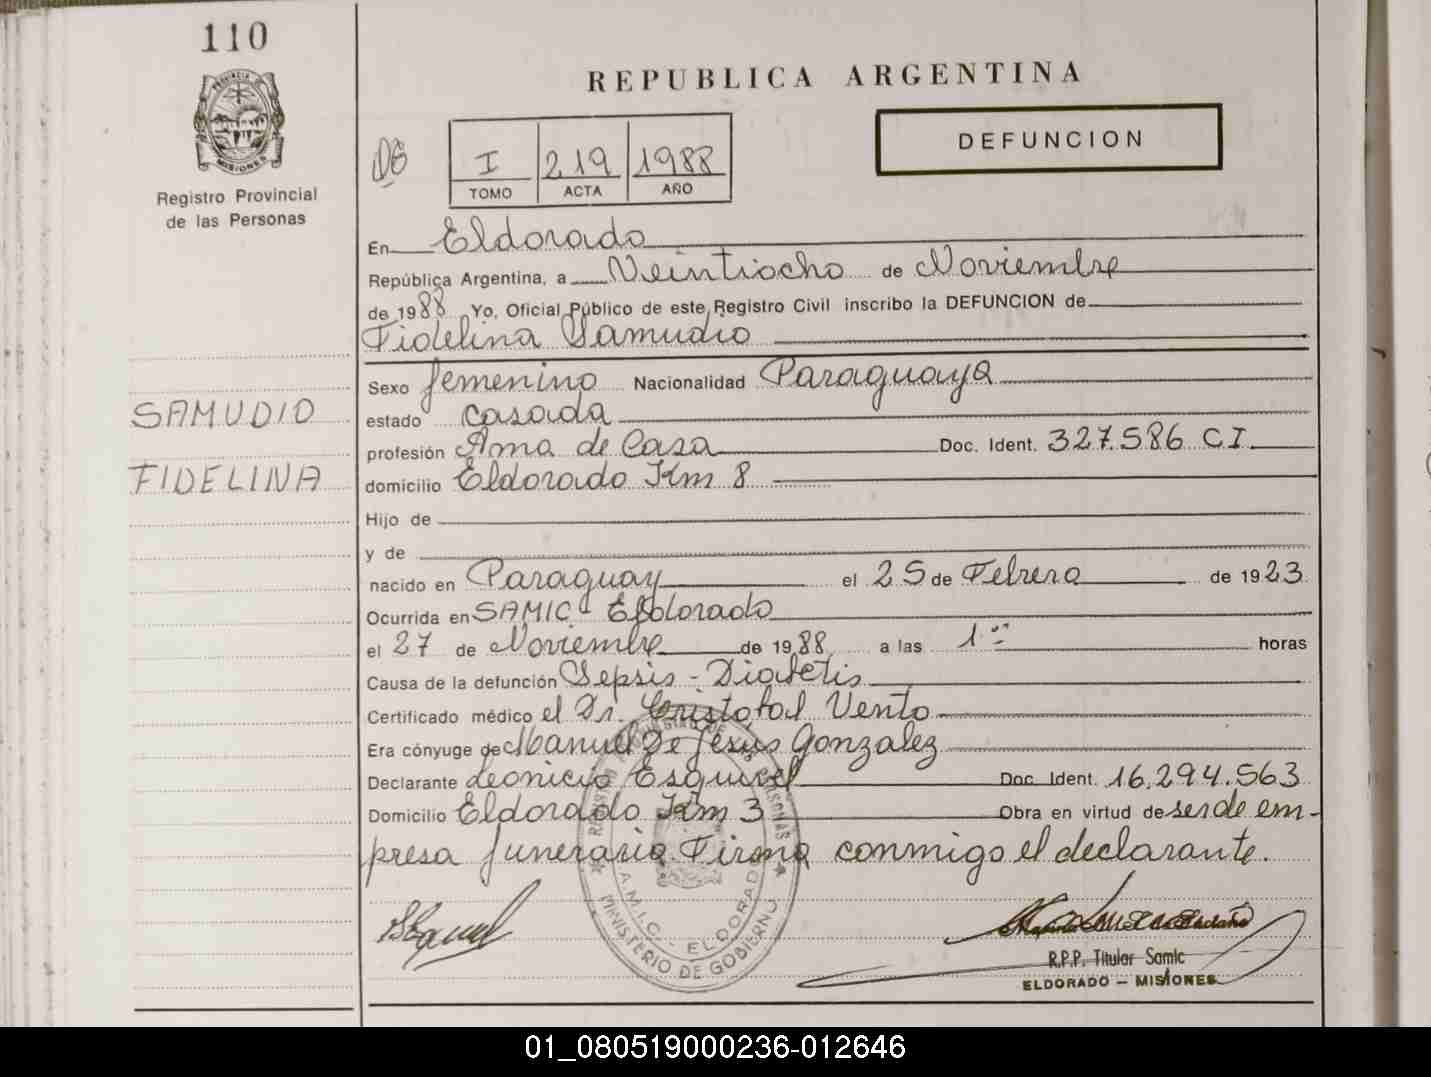 110
PROVINCIA DE
MISIONES
Registro Provincial
de las Personas
REPUBLICA ARGENTINA
I 219 1988
TOMO ACTA AÑO
DEFUNCION
En Eldorado
República Argentina, a Veintiocho de Noviembre
de 1988 Yo, Oficial Público de este Registro Civil inscribo la DEFUNCION de
Fidelina Samudio
Sexo femenino Nacionalidad Paraguaya
SAMUDIO
estado casada
profesión Ama de Casa Doc. Ident. 327.586 C I.
FIDELINA
domicilio Eldorado Km 8
Hijo de
y de
nacido en Paraguay el 25 de Febrero de 1923
Ocurrida en SAMIC Eldorado
el 27 de Noviembre de 1988 a las 1 horas
Causa de la defunción Sepsis - Diabetis
Certificado médico el Dr. Cristobal Vento
Era cónyuge de Manuel De Jesus Gonzalez
Declarante Leonicio Esquivel Doc. Ident. 16.294.563
Domicilio Eldorado Km 3 Obra en virtud de ser de em-
presa funeraria. Firma conmigo el declarante.
S.A.M.I.C. - ELDORADO
MINISTERIO DE GOBIERNO
R.P.P. Titular Samic
ELDORADO - MISIONES
01_080519000236-012646